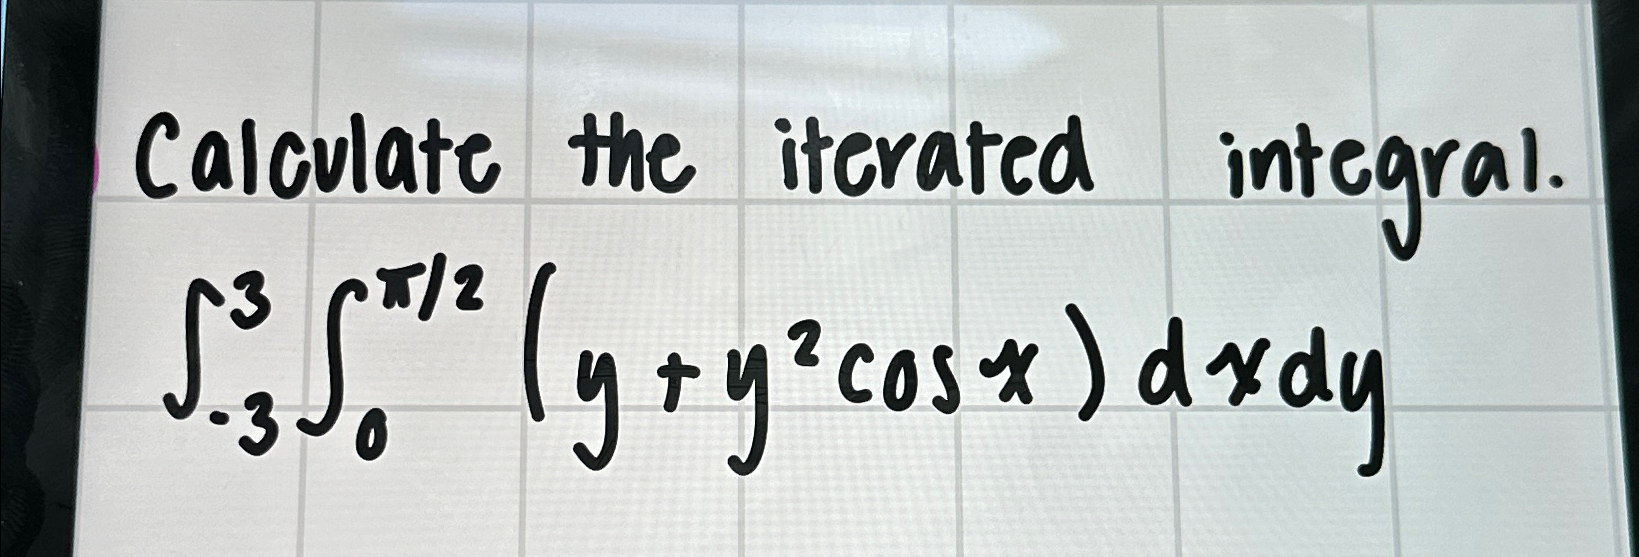 Calculate the iterated integral.
∫₋₃³ ∫₀^π/2 (y + y² cos x) dx dy